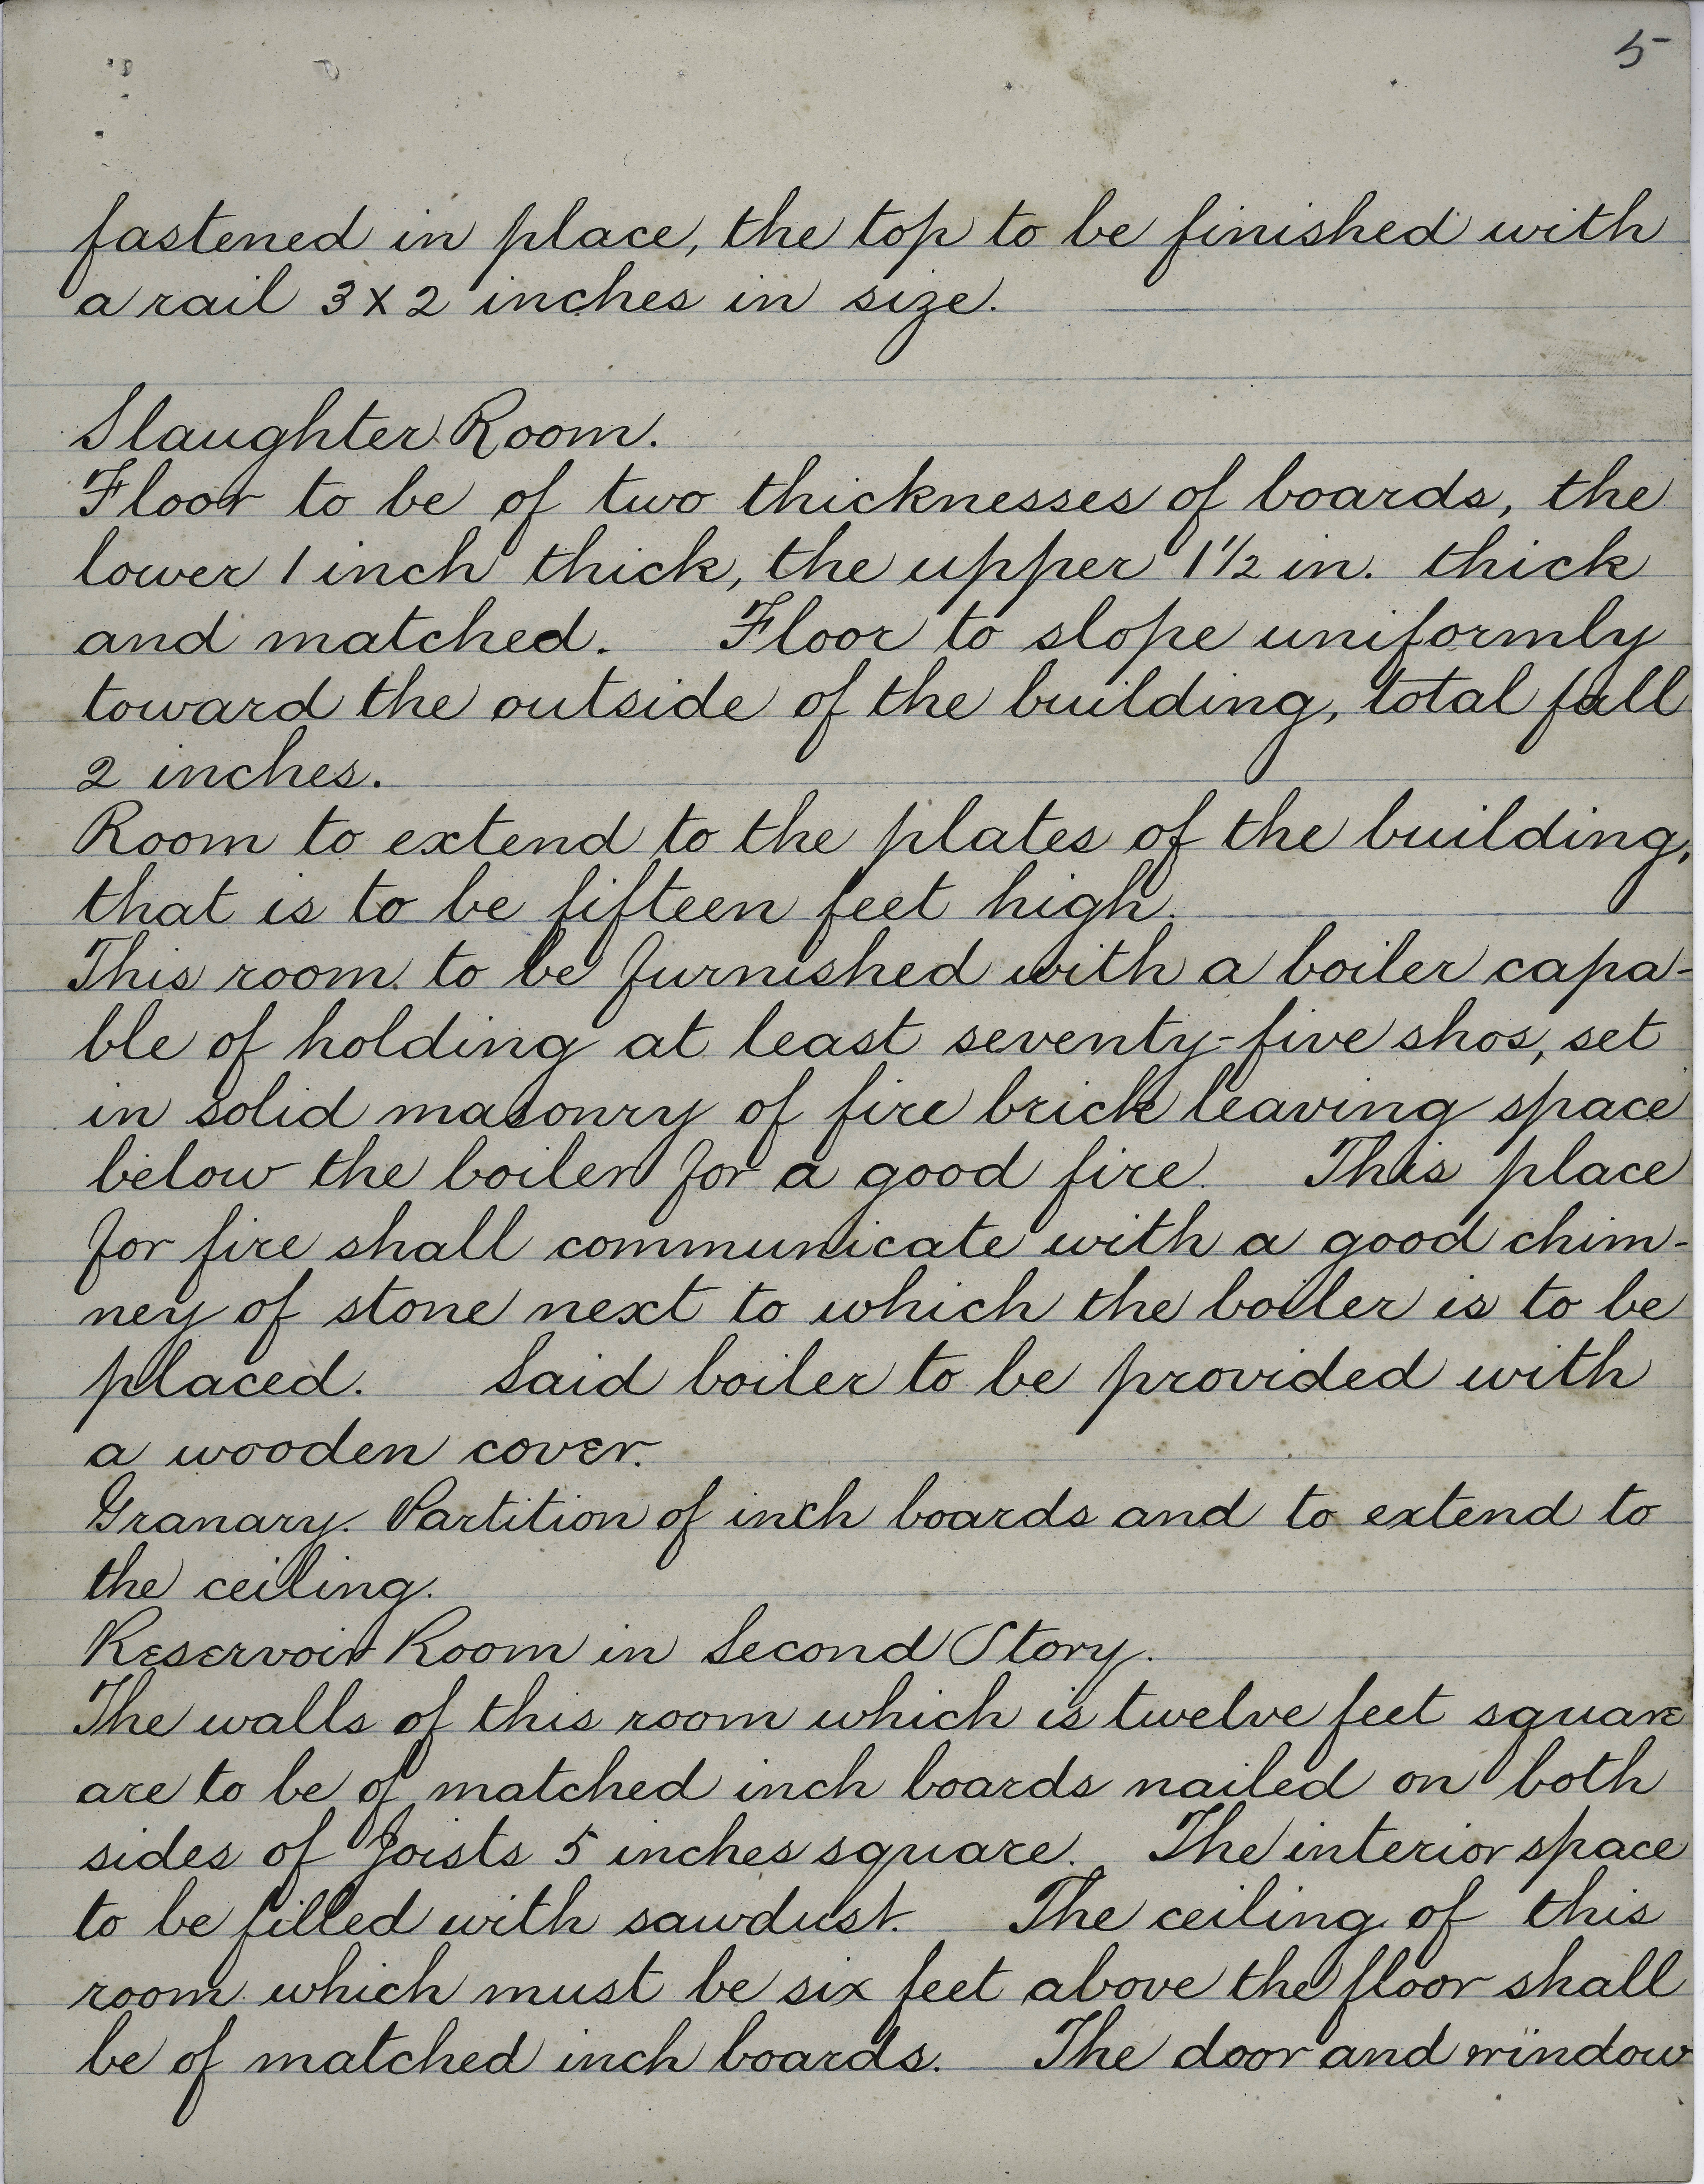 5
fastened in place, the top to be finished with
a rail 3 x 2 inches in size.
Slaughter Room.
Floor to be of two thicknesses of boards, the
lower 1 inch thick, the upper 1 1/2 in. thick
and matched. Floor to slope uniformly
toward the outside of the building, total fall
2 inches.
Room to extend to the plates of the building,
that is to be fifteen feet high.
This room to be furnished with a boiler capa-
ble of holding at least seventy-five shos, set
in solid masonry of fire brick leaving space
below the boiler for a good fire. This place
for fire shall communicate with a good chim-
ney of stone next to which the boiler is to be
placed. Said boiler to be provided with
a wooden cover.
Granary. Partition of inch boards and to extend to
the ceiling.
Reservoir Room in Second Story.
The walls of this room which is twelve feet square
are to be of matched inch boards nailed on both
sides of joists 5 inches square. The interior space
to be filled with sawdust. The ceiling of this
room which must be six feet above the floor shall
be of matched inch boards. The door and window